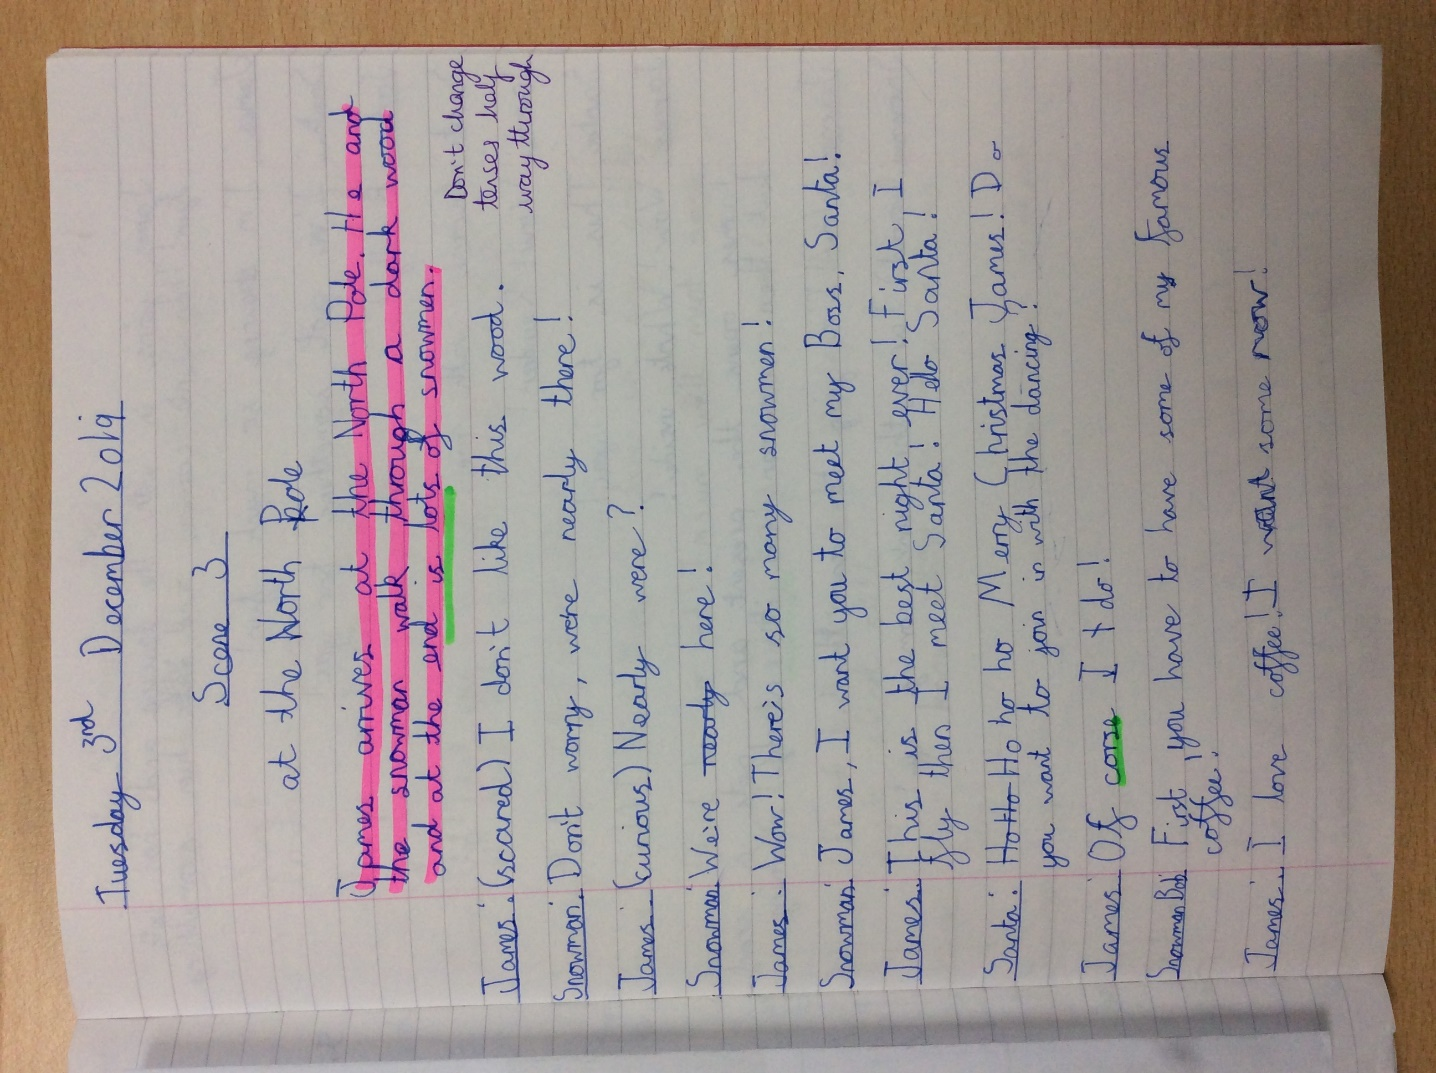 Tuesday 3rd December 2019
Scene 3
at the North Pole
(James arrives at the North Pole. He and
the snowman walk through a dark wood
and at the end is lots of snowmen.
Don't change
tenses half
way through
James: (scared) I don't like this wood.
Snowman: Don't worry, we're nearly there!
James: (curious) Nearly were?
Snowman: We're nearly here!
James: Wow! There's so many snowmen!
Snowman: James, I want you to meet my Boss, Santa!
James: This is the best night ever! First I
fly then I meet Santa! Hello Santa!
Santa: Ho Ho Ho ho ho Merry Christmas James! Do
you want to join in with the dancing?
James: Of corse I do!
Snowman Bob: First you have to have some of my famous
coffee.
James: I love coffee! I want some now!